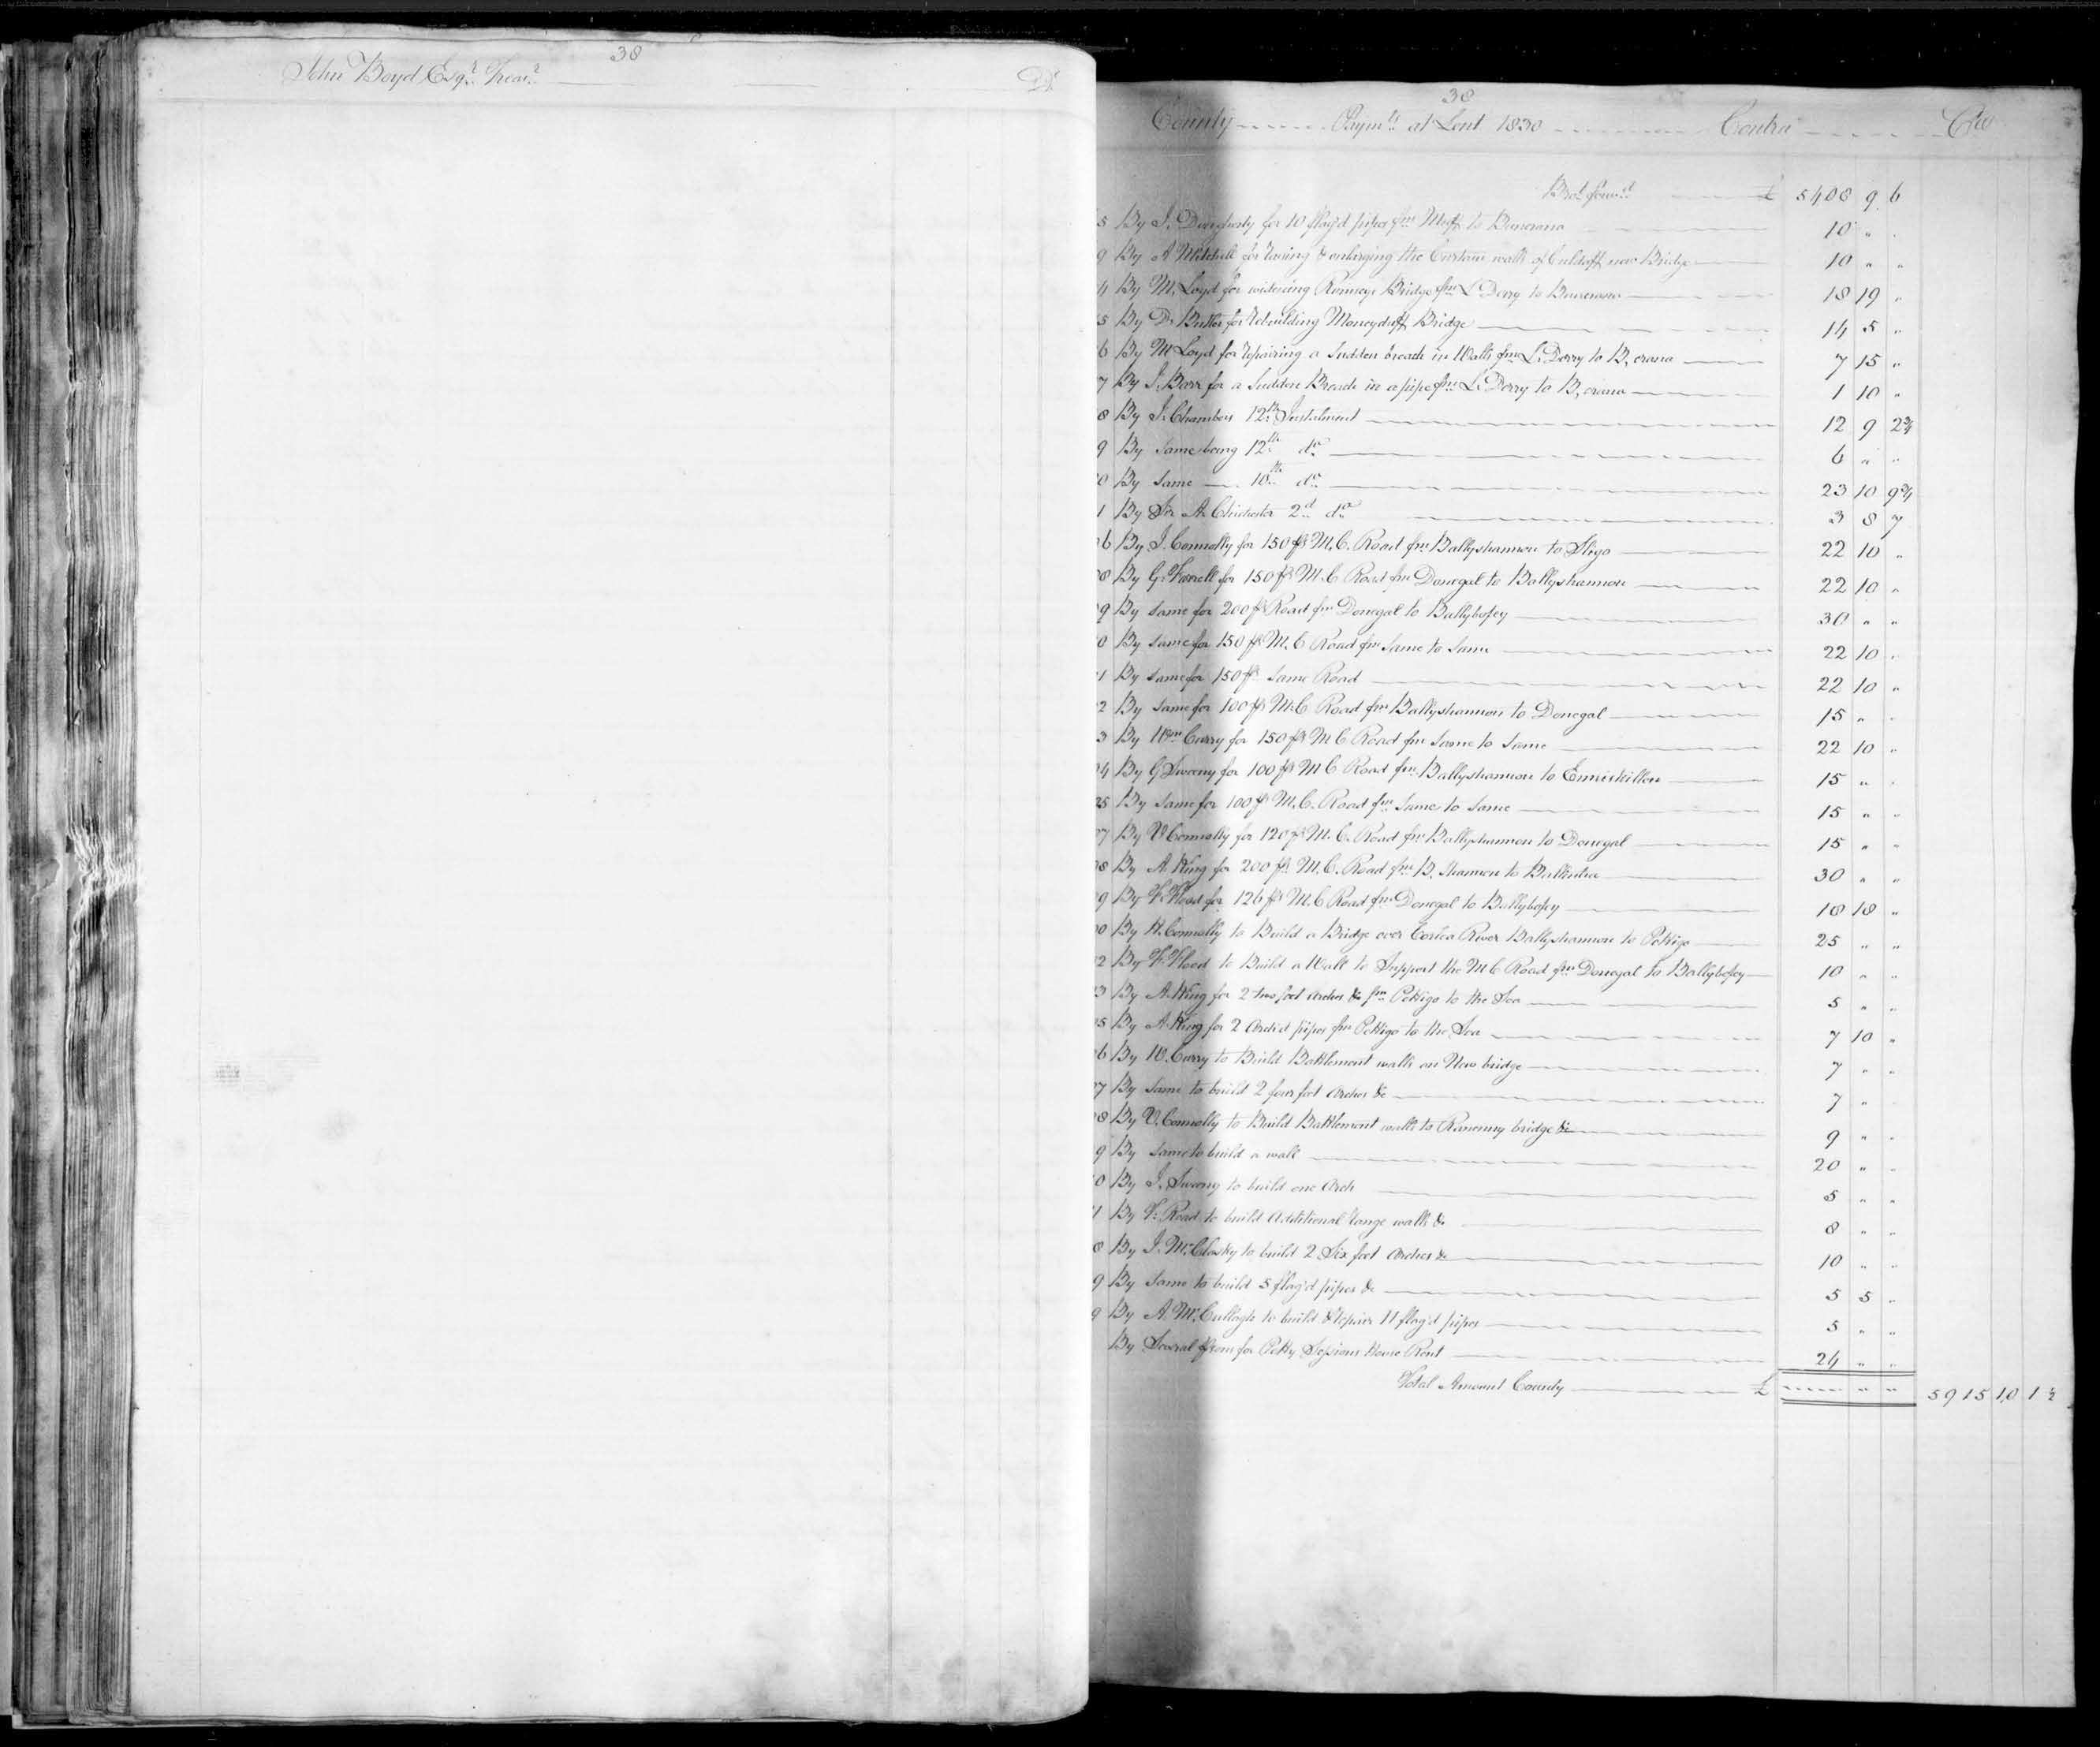 38
John Boyd Esqr. Treasr. Dr
38
County Paymts. at Lent 1830 Contra Cr
Brot. forwd. £ 5408 9 6
5 By J. Dougherty for 10 flag'd pipes fm. Muff to Buncrana 10 " "
9 By A Mitchell for raising & enlarging the Curtain walls of Culdaff new Bridge 10 " "
4 By M. Loyd for widening Bridge fm. L. Derry to Buncrana 18 19 "
5 By D. Butler for rebuilding Moneyduff Bridge 14 5 "
6 By M Loyd for repairing a Sudden breach in Walls fm. L. Derry to B, crana 7 15 "
7 By J. Barr for a Sudden Breach in a pipe fm. L. Derry to B, crana 1 10 "
8 By J. Chambers 12th. Instalment 12 9 2¾
9 By Same being 12th. do. 6 " "
0 By Same 10th. do. 23 10 9¾
1 By Sir A. Chichester 2d. do. 3 8 7
6 By J. Connolly for 150 ps M. C. Road fm. Ballyshannon to Sligo 22 10 "
8 By G. Farrell for 150 ps M. C Road fm. Donegal to Ballyshannon 22 10 "
9 By same for 200 ps Road fm. Donegal to Ballybofey 30 " "
0 By same for 150 ps M. C Road fm Same to Same 22 10 "
1 By same for 150 ps Same Road 22 10 "
2 By Same for 100 ps M. C. Road fm. Ballyshannon to Donegal 15 " "
3 By Wm. Curry for 150 ps M C Road fm Same to Same 22 10 "
4 By G Sweeny for 100 ps M C Road fm. Ballyshannon to Enniskillen 15 " "
25 By Same for 100 ps M. C. Road fm. Same to Same 15 " "
7 By V Connolly for 120 ps M. C. Road fm. Ballyshannon to Donegal 15 " "
8 By A. King for 200 ps M. C. Road fm. B. Shannon to Ballintra 30 " "
9 By F. Flood for 126 ps M. C Road fm. Donegal to Ballybofey 18 18 "
0 By H. Connolly to Build a Bridge over River Ballyshannon to Pettigo 25 " "
2 By F. Flood to Build a Wall to Support the M C Road fm. Donegal to Ballybofey 10 " "
3 By A. King for 2 two foot Arches &c fm. Pettigo to the Sea 5 " "
5 By A. King for 2 Arch'd pipes fm. Pettigo to the Sea 7 10 "
6 By W. Curry to Build Battlement walls on New bridge 7 " "
7 By Same to build 2 four foot Arches &c 7 " "
8 By V. Connolly to Build Battlement walls to bridge &c 9 " "
9 By Same to build a wall 20 " "
0 By J. Sweeny to build one Arch 5 " "
1 By to build Additional range walls &c 8 " "
8 By J. McClosky to build 2 Six foot Arches &c 10 " "
9 By Same to build 5 flag'd pipes &c 5 5 "
9 By A. McCullagh to build & repair 11 flag'd pipes 5 " "
By Several from for Petty Sessions House Rent 24 " "
Total Amount County £ " " 5915 10 1½